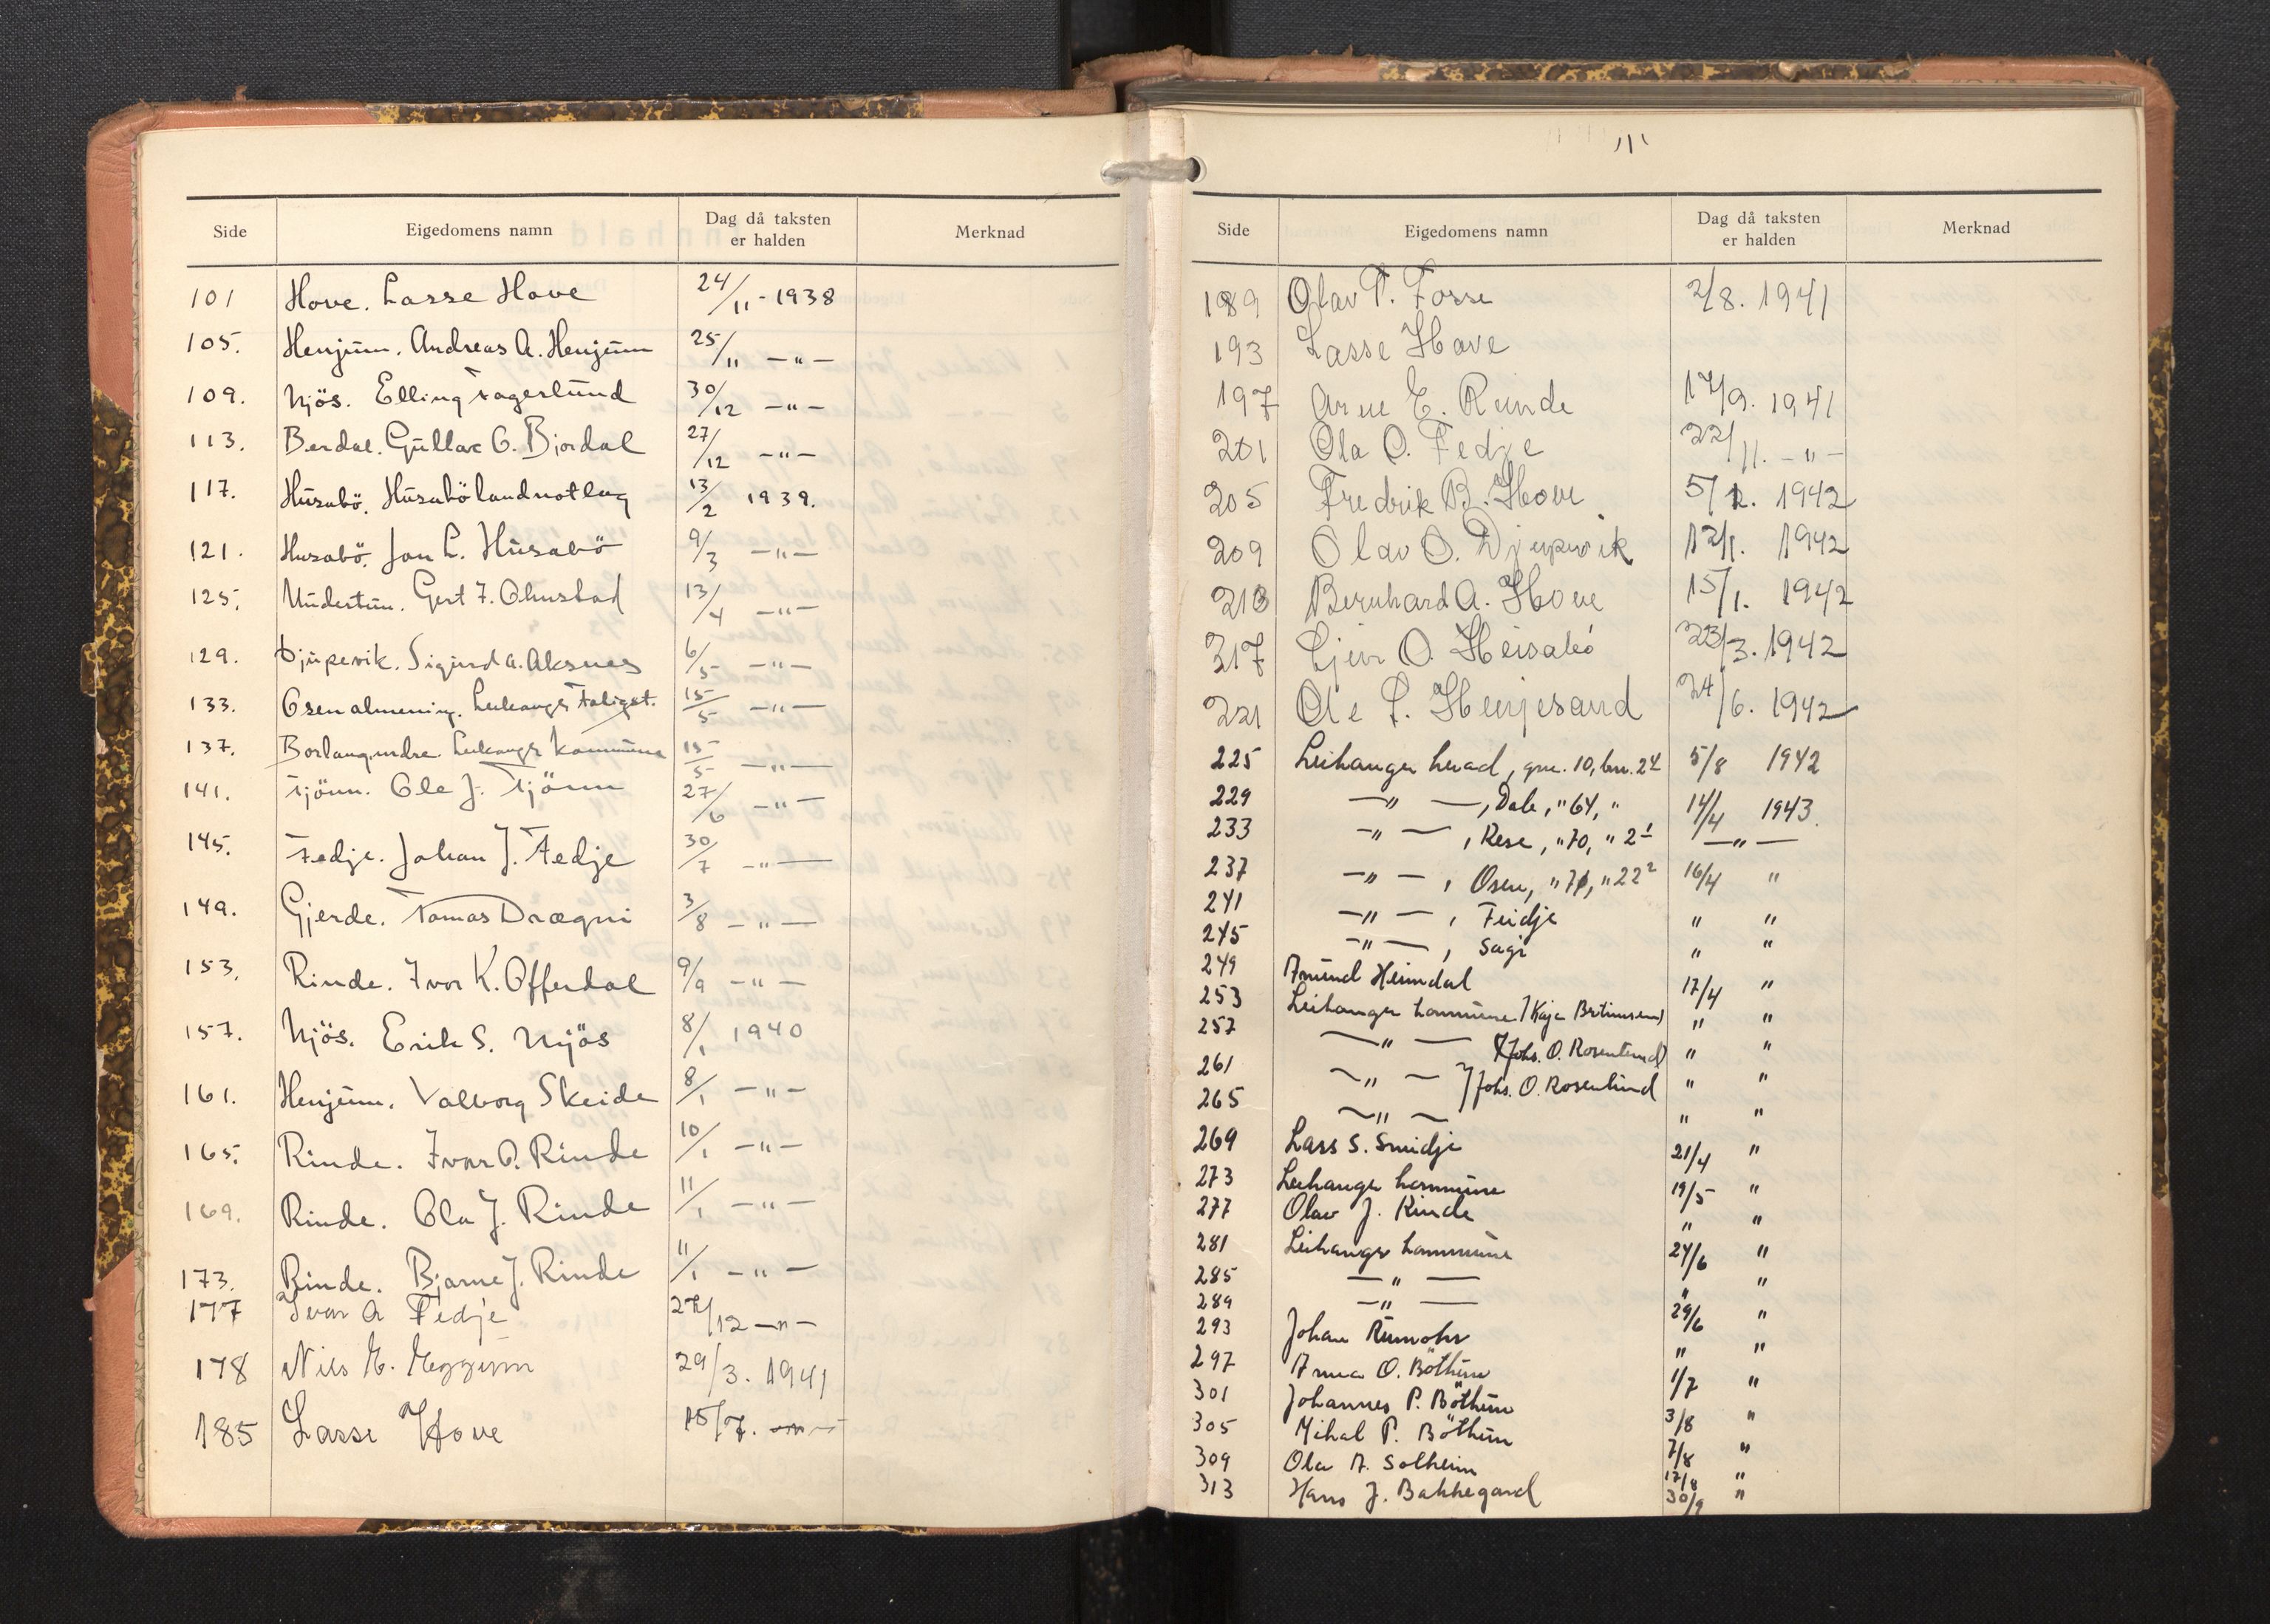 Side Eigedomens namn Dag då taksten er halden Merknad
101 Hove. Lasse Hove 24/11 - 1938
105. Henjum. Andreas A. Henjum 25/11 —"—
109. Njös. Elling Fagerlund 30/12 —"—
113. Berdal. Gullak O. Bjordal 27/12 —"—
117. Husabö. Husabölandnotlag 13/2 1939.
121. Husabö. Jon L. Husabö 9/3 —"—
125. Undertun. Gert F. Ohnstad 13/4 —"—
129. Djupevik. Sigurd A. Aksnes 6/5 —"—
133. Osen almening. Leikanger Fatigst. 15/5 —"—
137. Borlaug, indre. Leikanger kommune 15/5 —"—
141. Tjönn. Ole J. Tjönn 27/6 —"—
145. Fedje. Johan J. Fedje 30/7 —"—
149. Gjerde. Tomas Drægni 3/8 —"—
153. Rinde. Ivar K. Offerdal 9/9 —"—
157. Njös. Erik S. Njös 8/1 1940
161. Henjum. Valborg Skeide 8/1 —"—
165. Rinde. Ivar O. Rinde 10/1 —"—
169. Rinde. Ola J. Rinde 11/1 —"—
173. Rinde. Bjarne J. Rinde 11/1 —"—
177 Ivar A Fedje 27/12 —"—
178 Nils E. Eggum 29/3. 1941
185 Lasse Hove 15/7. —"—
Side Eigedomens namn Dag då taksten er halden Merknad
189 Olav P. Fosse 2/8. 1941
193 Lasse Hove
197 Arne E. Rinde 17/9. 1941
201 Ola O. Fedje 22/11. —"—
205 Fredrik B. Hove 5/1. 1942
209 Olav O. Djupevik 12/1. 1942
213 Bernhard A. Hove 15/1. 1942
217 O. Husabö 23/3. 1942
221 Ole L. Henjesand 24/6. 1942
225 Leikanger herad, gnr. 10, bnr. 24 5/8 1942
229 —"— —, Dale, " 64, " 14/4 1943.
233 —"— —, Rese, " 70, " 2¹ —"—
237 —"— —, Osen, " 71, " 22² 16/4 "
241 —"— —, Feidje " "
245 —"— —, Sagi " "
249 Amund Heimdal 17/4 "
253 Leikanger kommune / (Kaja Bertinusen) " "
257 —"— — (Johs. O. Rosenlund) " "
261 —"— — / Johs. O. Rosenlund " "
265 —"— — " "
269 Lars S. Smidje 21/4 "
273 Leikanger kommune 19/5 "
277 Olav J. Rinde " "
281 Leikanger kommune 24/6 "
285 —"— — " "
289 —"— — 29/6 "
293 Johan Rumohr " "
297 Anna O. Böthun 1/7 "
301 Johannes P. Böthun 3/8 "
305 Mikal P. Böthun 7/8 "
309 Ola A. Solheim 17/8 "
313 Hans J. Bakkegard 30/9 "